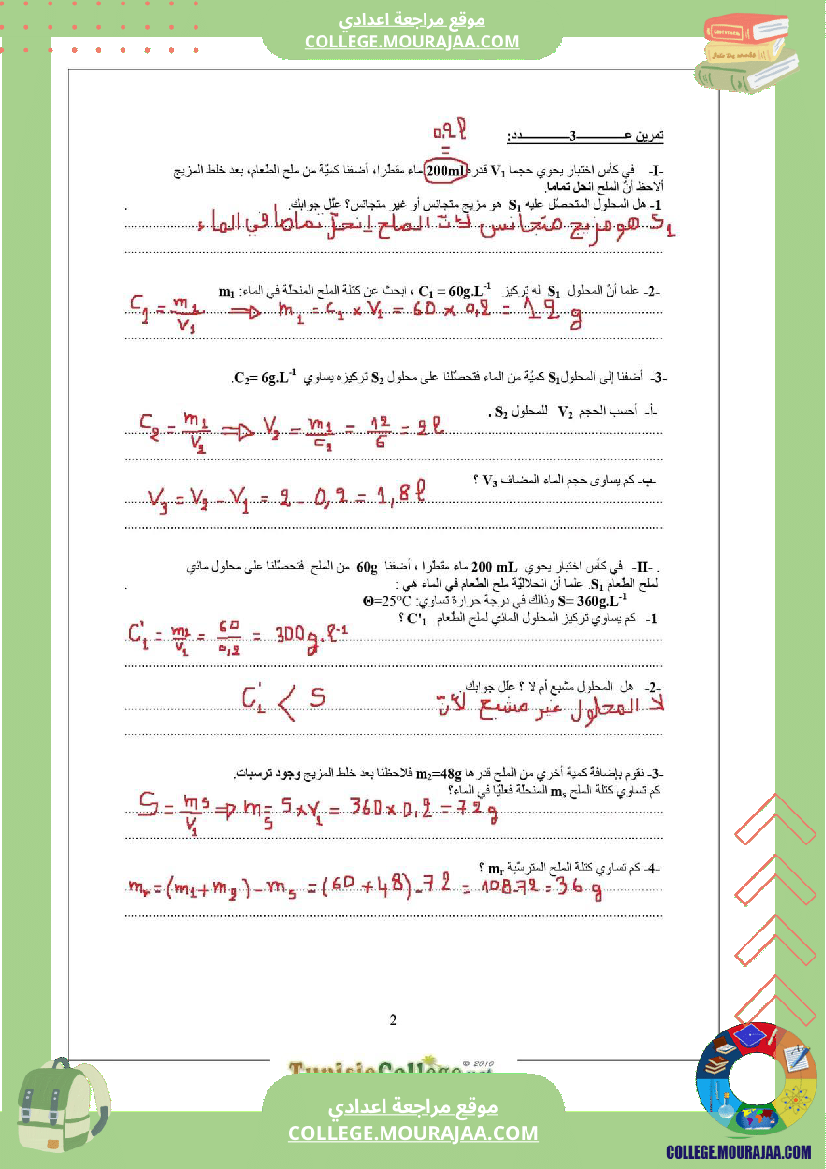 موقع مراجعة اعدادي
COLLEGE.MOURAJAA.COM
0,2 l
=
تمرين عـــــــــــ3ـــــــــــدد:
-I- في كأس اختبار يحوي حجما V₁ قدره 200ml ماء مقطرا، أضفنا كميّة من ملح الطّعام، بعد خلط المزيج
ألاحظ أنّ الملح انحل تماما.
1- هل المحلول المتحصّل عليه S₁ هو مزيج متجانس أو غير متجانس؟ علّل جوابك.
S₁ هو مزيج متجانس لأنّ الملح إنحلّ تماما في الماء
-2- علما أنّ المحلول S₁ له تركيز C₁ = 60g.L⁻¹ ، ابحث عن كتلة الملح المنحلّة في الماء: m₁
C₁ = m₁/V₁ ⇒ m₁ = C₁ × V₁ = 60 × 0,2 = 12 g
-3- أضفنا إلى المحلول S₁ كميّة من الماء فتحصّلنا على محلول S₂ تركيزه يساوي C₂= 6g.L⁻¹.
-أ- أحسب الحجم V₂ للمحلول S₂ .
C₂ = m₁/V₂ ⇒ V₂ = m₁/C₂ = 12/6 = 2 l
-ب- كم يساوي حجم الماء المضاف V₃ ؟
V₃ = V₂ - V₁ = 2 - 0,2 = 1,8 l
. -II- في كأس اختبار يحوي 200 mL ماء مقطرا ، أضفنا 60g من الملح فتحصّلنا على محلول مائي
لملح الطّعام S₁. علما أن انحلاليّة ملح الطّعام في الماء هي :
S= 360g.L⁻¹ وذلك في درجة حرارة تساوي: Θ=25°C
1- كم يساوي تركيز المحلول المائي لملح الطّعام C'₁ ؟
C'₁ = m₁/V₁ = 60/0,2 = 300 g.l⁻¹
-2- هل المحلول مشبع أم لا ؟ علّل جوابك.
لا المحلول غير مشبع لأنّ C'₁ < S
-3- نقوم بإضافة كمية أخرى من الملح قدرها m₂=48g فلاحظنا بعد خلط المزيج وجود ترسبات.
كم تساوي كتلة الملح mₛ المنحلّة فعليّا في الماء؟
S = mₛ/V₁ ⇒ mₛ = S × V₁ = 360 × 0,2 = 72 g
-4- كم تساوي كتلة الملح المترسّبة mᵣ ؟
mᵣ = (m₁ + m₂) - mₛ = (60 + 48) - 72 = 108-72 = 36 g
2
© 2010
TunisieCollege.net
موقع مراجعة اعدادي
COLLEGE.MOURAJAA.COM
COLLEGE.MOURAJAA.COM